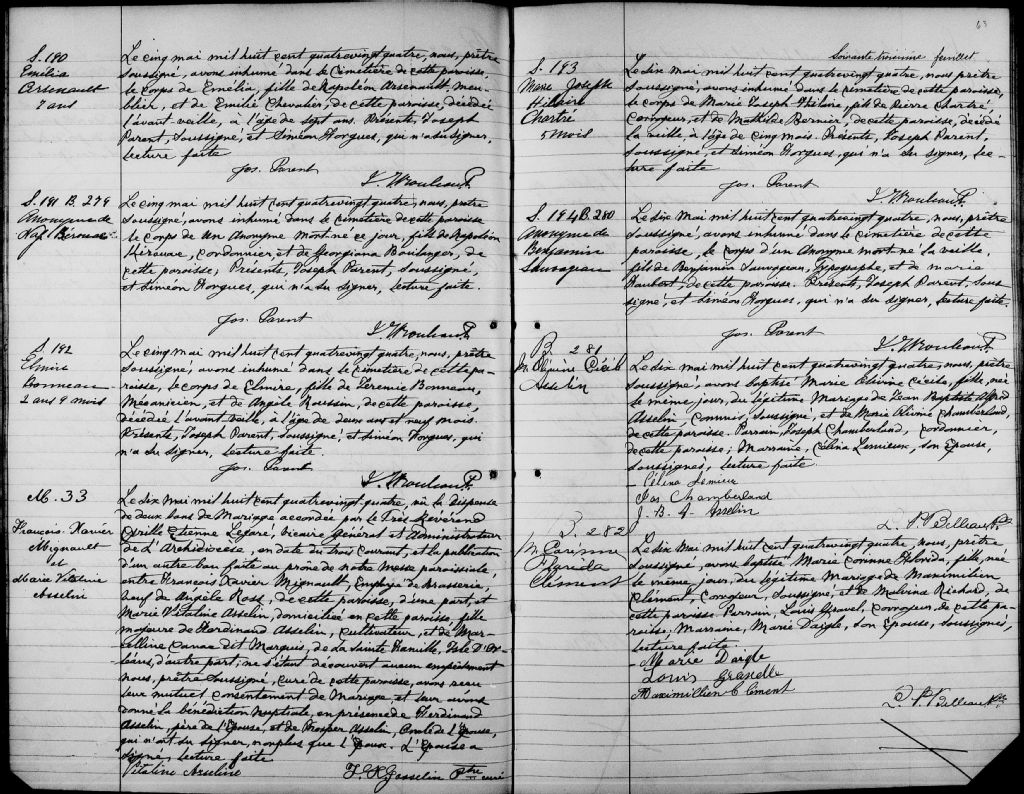 S. 190
Emélia
Arsenault
7 ans
Le cinq mai mil huit cent quatrevingt quatre, nous, prêtre
soussigné, avons inhumé dans le cimetière de cette paroisse,
le corps de Emélia, fille de Napoléon Arsenault, meu-
blier, et de Emilie Chevalier, de cette paroisse, décédée
l'avant veille, à l'âge de sept ans. Présents, Joseph
Parent, soussigné, et Siméon Horgues, qui n'a su signer,
lecture faite
Jos. Parent
S. 191 B. 279
Anonyme de
Nap. Kérouac
Le cinq mai mil huit cent quatrevingt quatre, nous, prêtre
soussigné, avons inhumé dans le cimetière de cette paroisse
le corps de un Anonyme mort né ce jour, fils de Napoléon
Kirouac, cordonnier et de Georgiana Boulanger, de
cette paroisse, Présents, Joseph Parent, soussigné,
et Siméon Horgues, qui n'a su signer, lecture faite.
Jos. Parent
S. 192
Elmire
Bonneau
2 ans 9 mois
Le cinq mai mil huit cent quatrevingt quatre, nous, prêtre
soussigné, avons inhumé dans le cimetière de cette pa-
roisse, le corps de Elmire, fille de Jérémie Bonneau,
Mécanicien, et de Angèle Roussin, de cette paroisse,
décédée l'avant veille, à l'âge de deux ans et neuf mois.
Présents, Joseph Parent, soussigné, et Siméon Horgues, qui
n'a su signer, lecture faite.
Jos. Parent
M. 33
François Xavier
Mignault
et
Marie Vitaline
Asselin
Le dix mai mil huit cent quatrevingt quatre, vu la dispense
de deux bans de Mariage accordée par le Très Révérend
Cyrille Etienne Légaré, vicaire Général et Administrateur
de L'Archidiocèse, en date du trois courant, et la publication
d'un autre ban faite au prône de notre messe paroissiale
entre François Xavier Mignault Employé de brasserie,
veuf de Angèle Ross, de cette paroisse, d'une part, et
Marie Vitaline Asselin, domiciliée en cette paroisse, fille
majeure de Ferdinand Asselin, cultivateur, et de Mar-
celline Canac dit Marquis, de La Sainte Famille, Isle D'Or-
léans, d'autre part; ne s'étant découvert aucun empêchement
nous, prêtre soussigné, curé de cette paroisse, avons reçu
leur mutuel consentement de Mariage et leur avons
donné la bénédiction Nuptiale, en présence de Ferdinand
Asselin, père de l'Epouse, et de Prosper Asselin, Oncle de l'Epouse,
qui n'ont su signer, non plus que l'Epoux. L'Epouse a
signé, lecture faite
Vitaline Asselin
F. X. Gosselin Ptre curé
63
Soixante troisième feuillet
S. 193
Marie Joseph
Hilaire
Chartré
5 mois
Le dix mai mil huit cent quatrevingt quatre, nous prêtre
soussigné, avons inhumé dans le cimetière de cette paroisse,
le corps de Marie Joseph Hilaire, fils de Pierre Chartré
Corroyeur, et de Mathilde Bernier, de cette paroisse, décédé
la veille à l'âge de cinq mois. Présents, Joseph Parent,
soussigné, et Siméon Horgues, qui n'a su signer, lec-
ture faite
Jos. Parent
S. 194 B. 280
Anonyme de
Benjamin
Sauvageau
Le dix mai mil huit cent quatrevingt quatre, nous, prêtre
soussigné, avons inhumé dans le cimetière de cette
paroisse, le corps d'un Anonyme mort né la veille,
fils de Benjamin Sauvageau, Typographe, et de Marie
Haubert, de cette paroisse. Présents, Joseph Parent, sous
signé, et Siméon Horgues, qui n'a su signer, lecture faite.
Jos. Parent
B. 281
M. Olivine Cécile
Asselin
Le dix mai mil huit cent quatrevingt quatre, nous, prêtre
soussigné, avons baptisé Marie Olivine Cécile, fille, née
le même jour, du légitime Mariage de Jean Baptiste Alfred
Asselin, Commis, soussigné, et de Marie Olivine Chamberland,
de cette paroisse. Parrain, Joseph Chamberland, cordonnier,
de cette paroisse; Marraine, Célina Lemieux, son Epouse,
soussignés, lecture faite
Célina Lemieux
Jos Chamberland
J. B. A. Asselin
B. 282
M. Corinne
Florida
Clément
Le dix mai mil huit cent quatrevingt quatre, nous, prêtre
soussigné, avons baptisé Marie Corinne Florida, fille, née
le même jour, du légitime Mariage de Maximilien
Clément, Corroyeur, soussigné, et de Malvina Richard, de
cette paroisse. Parrain, Louis Gravel, corroyeur, de cette pa-
roisse; Marraine, Marie Daigle, son Epouse, soussignés,
lecture faite.
Marie Daigle
Louis Gravelle
Maximillien Clément